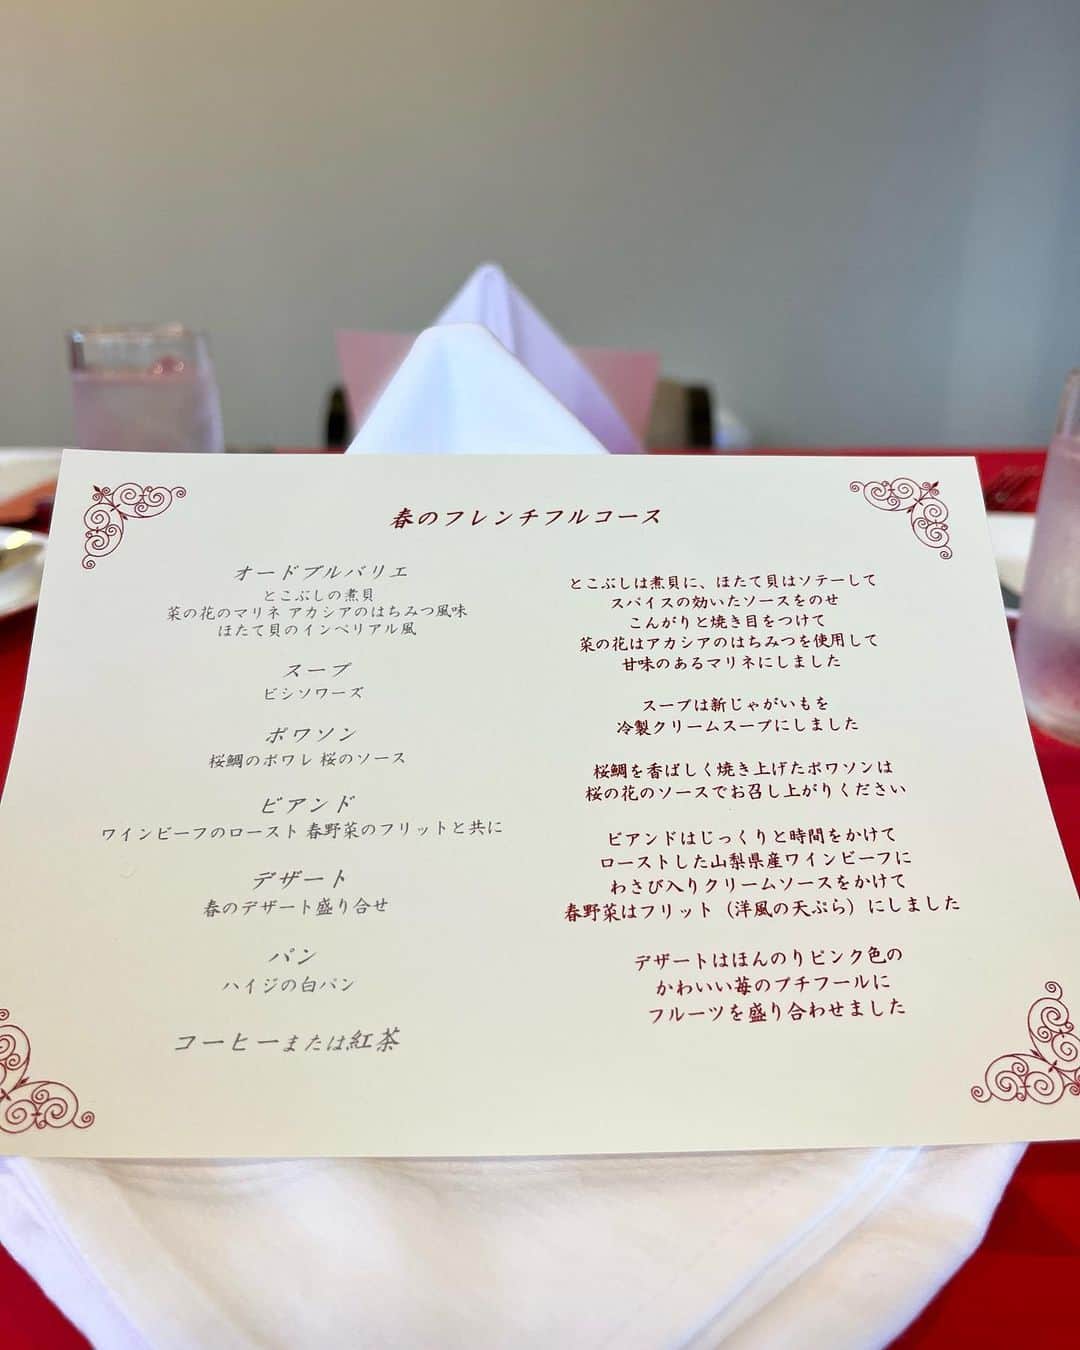 春のフレンチフルコース
オードブルバリエ
とこぶしの煮貝
菜の花のマリネ アカシアのはちみつ風味
ほたて貝のインペリアル風
スープ
ビシソワーズ
ポワソン
桜鯛のポワレ 桜のソース
ビアンド
ワインビーフのロースト 春野菜のフリットと共に
デザート
春のデザート盛り合せ
パン
ハイジの白パン
コーヒーまたは紅茶
とこぶしは煮貝に、ほたて貝はソテーして
スパイスの効いたソースをのせ
こんがりと焼き目をつけて
菜の花はアカシアのはちみつを使用して
甘味のあるマリネにしました
スープは新じゃがいもを
冷製クリームスープにしました
桜鯛を香ばしく焼き上げたポワソンは
桜の花のソースでお召し上がりください
ビアンドはじっくりと時間をかけて
ローストした山梨県産ワインビーフに
わさび入りクリームソースをかけて
春野菜はフリット（洋風の天ぷら）にしました
デザートはほんのりピンク色の
かわいい苺のプチフールに
フルーツを盛り合わせました